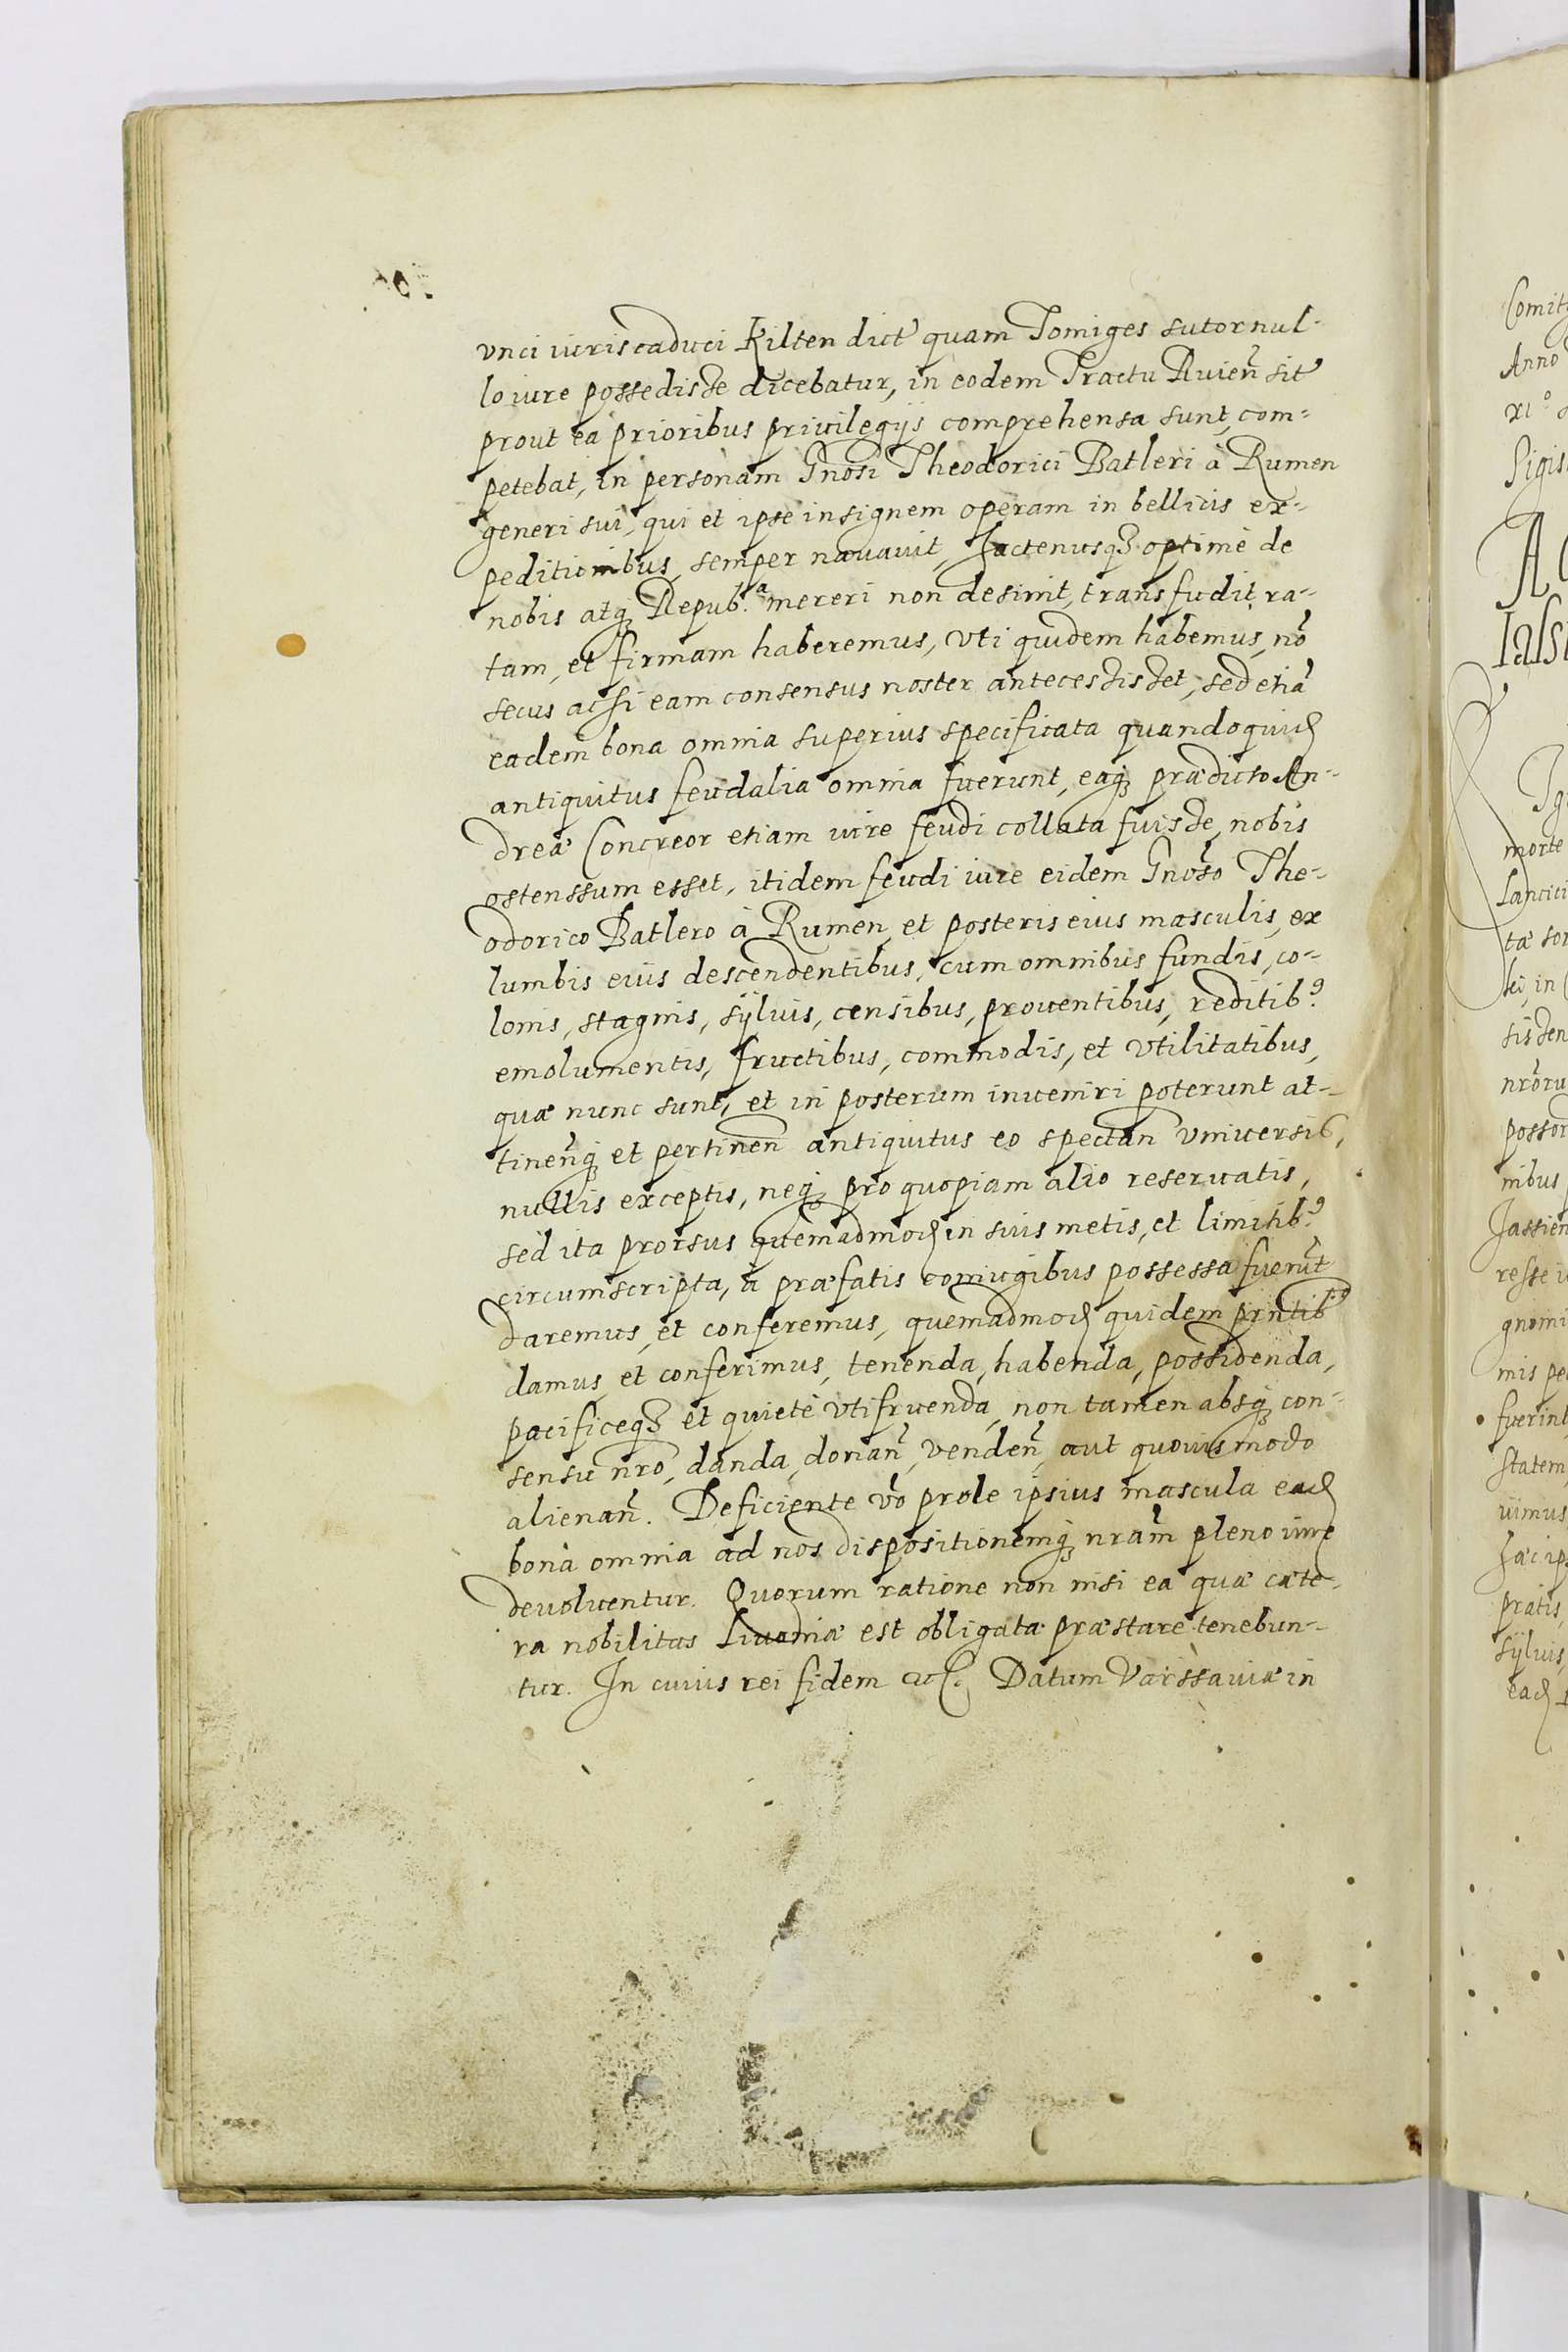 vnci iuris caduci Kilten dict quam Tomiges sutor nul-
lo iure possedisse dicebatur, in eodem Tractu Ruień sit
prout ea prioribus priuilegijs comprehensa sunt, com-
petebat, in personam Gnosi Theodorici Batleri à Rumen
generi sui, qui et ipse insignem operam in bellicis ex-
peditionibus semper nauauit, hactenusqꝫ optimè de
nobis atqꝫ Repub.ᵃ mereri non desinit, transfudit, ra-
tam, et firmam haberemus, vti quidem habemus, nō
secus ac si eam consensus noster antecessisset, sed etiā
eadem bona omnia superius specificata quandoquid
antiquitus feudalia omnia fuerunt, eaqꝫ prædicto An-
dreæ Concreor etiam iure feudi collata fuisse nobis
ostenssum esset, itidem feudi iure eidem Gnoso The-
odorico Batlero à Rumen et posteris eius masculis, ex
lumbis eius descendentibus, cum omnibus fundis, co-
lonis, stagnis, sÿluis, censibus, prouentibus, reditib⁹
emolumentis, fructibus, commodis, et vtilitatibus,
quæ nunc sunt, et in posterum inueniri poterunt at-
tineñqꝫ et pertineñ antiquitus eo spectañ vniuersis,
nullis exceptis, neqꝫ pro quopiam alio reseruatis,
sed ita prorsus quemadmod in suis metis, et limitib⁹
circumscripta, à præfatis coniugibus possessa fuerūt
daremus, et conferemus, quemadmod quidem pñtib⁹
damus et conferimus, tenenda, habenda, possidenda,
pacificeqꝫ et quietè vtifruenda, non tamen absqꝫ con-
sensu nr̄o, danda, donañ, vendeñ aut quouis modo
alienañ. Deficiente vo prole ipsius mascula ead
bona omnia ad nos dispositionemqꝫ nr̄am pleno iure
deuoluentur. Quorum ratione non nisi ea quæ cæte-
ra nobilitas Liuoniæ est obligata præstare tenebun-
tur. In cuius rei fidem etc. Datum Varssauiæ in
Comit
Anno
xi°
Sigis
morte
tæ
in
possor
nibus
gnomi
mis pe
fuerint
statem
uimus
pratis
sÿluis,
ead